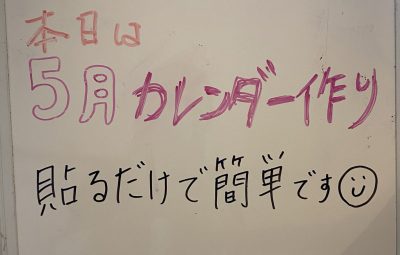 本日は
5月カレンダー作り
貼るだけで簡単です☺